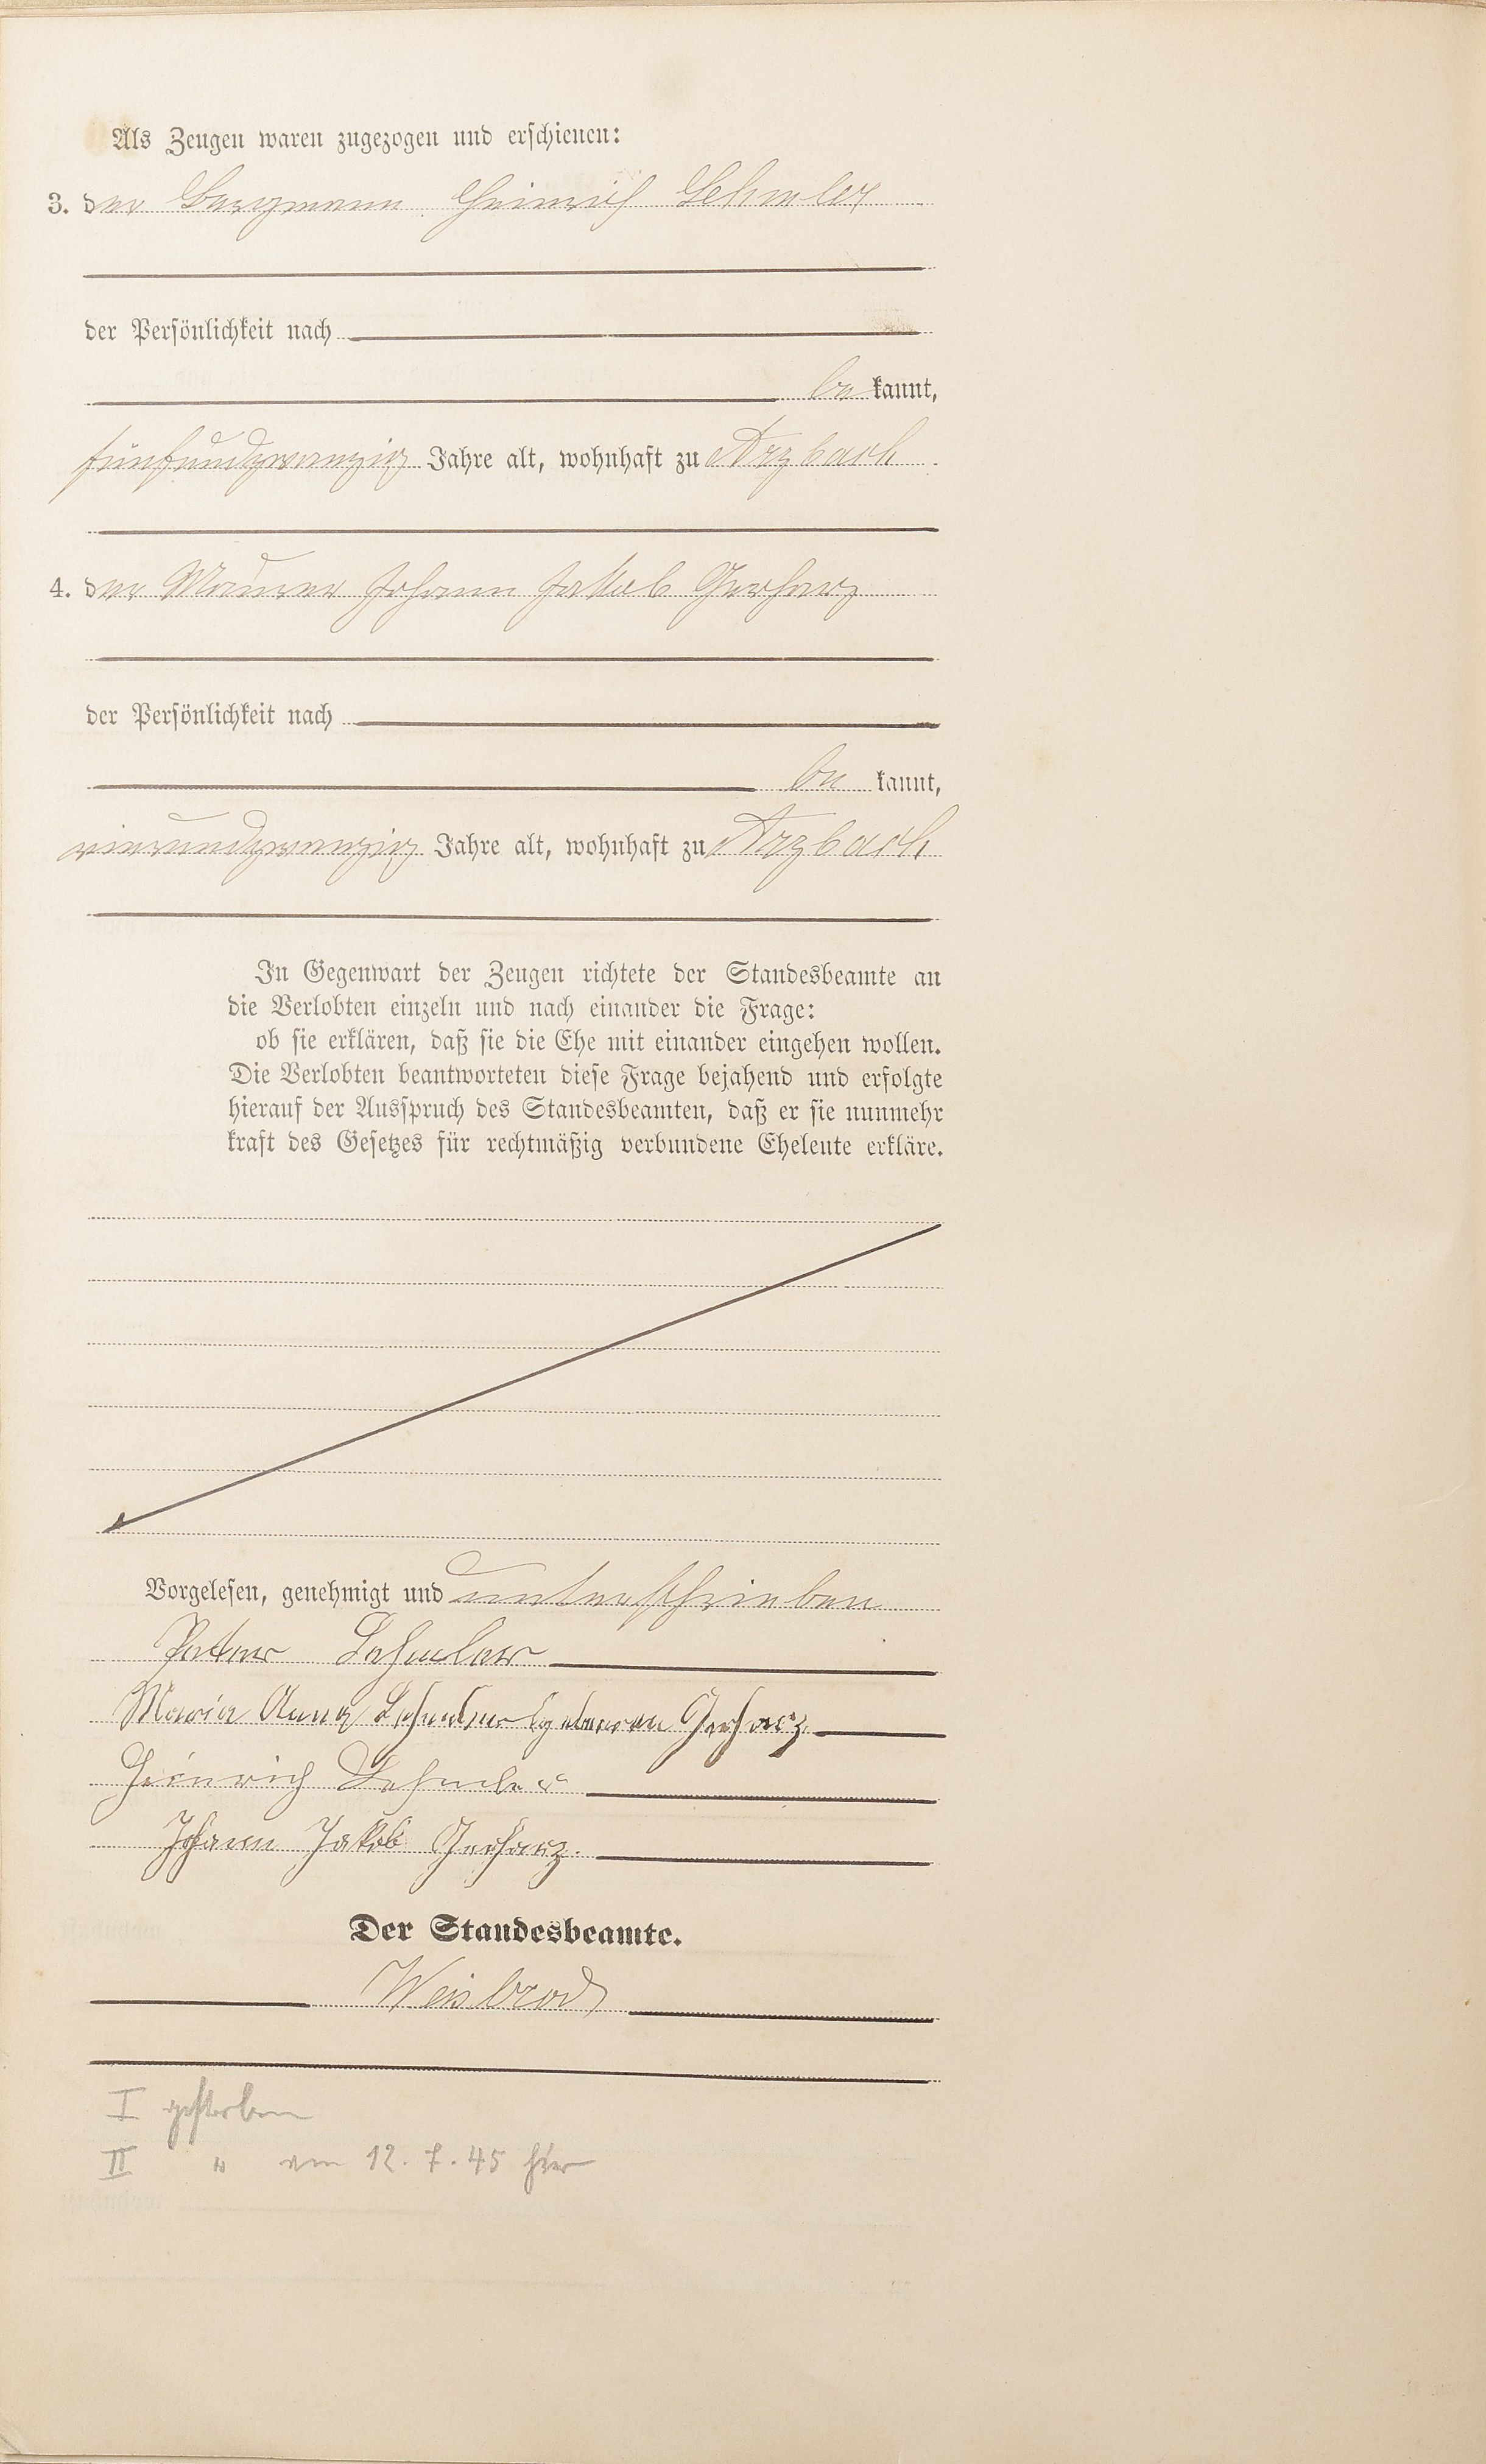 Als Zeugen waren zugezogen und erschienen:
3. der Bergmann Heinrich Lehmler
der Persönlichkeit nach
be kannt,
fünfundzwanzig Jahre alt, wohnhaft zu Arzbach
4. der Maurer Johann Jakob Gerharz
der Persönlichkeit nach
be kannt,
vierundzwanzig Jahre alt, wohnhaft zu Arzbach
In Gegenwart der Zeugen richtete der Standesbeamte an
die Verlobten einzeln und nach einander die Frage:
ob sie erklären, daß sie die Ehe mit einander eingehen wollen.
Die Verlobten beantworteten diese Frage bejahend und erfolgte
hierauf der Ausspruch des Standesbeamten, daß er sie nunmehr
kraft des Gesetzes für rechtmäßig verbundene Eheleute erkläre.
Vorgelesen, genehmigt und unterschrieben
Peter Lehmler
Maria Anna Lehmler geboren Gerharz
Heinrich Lehmler
Johann Jakob Gerharz.
Der Standesbeamte.
Weisbrod
I gestorben
II " am 12. 7. 45 hier